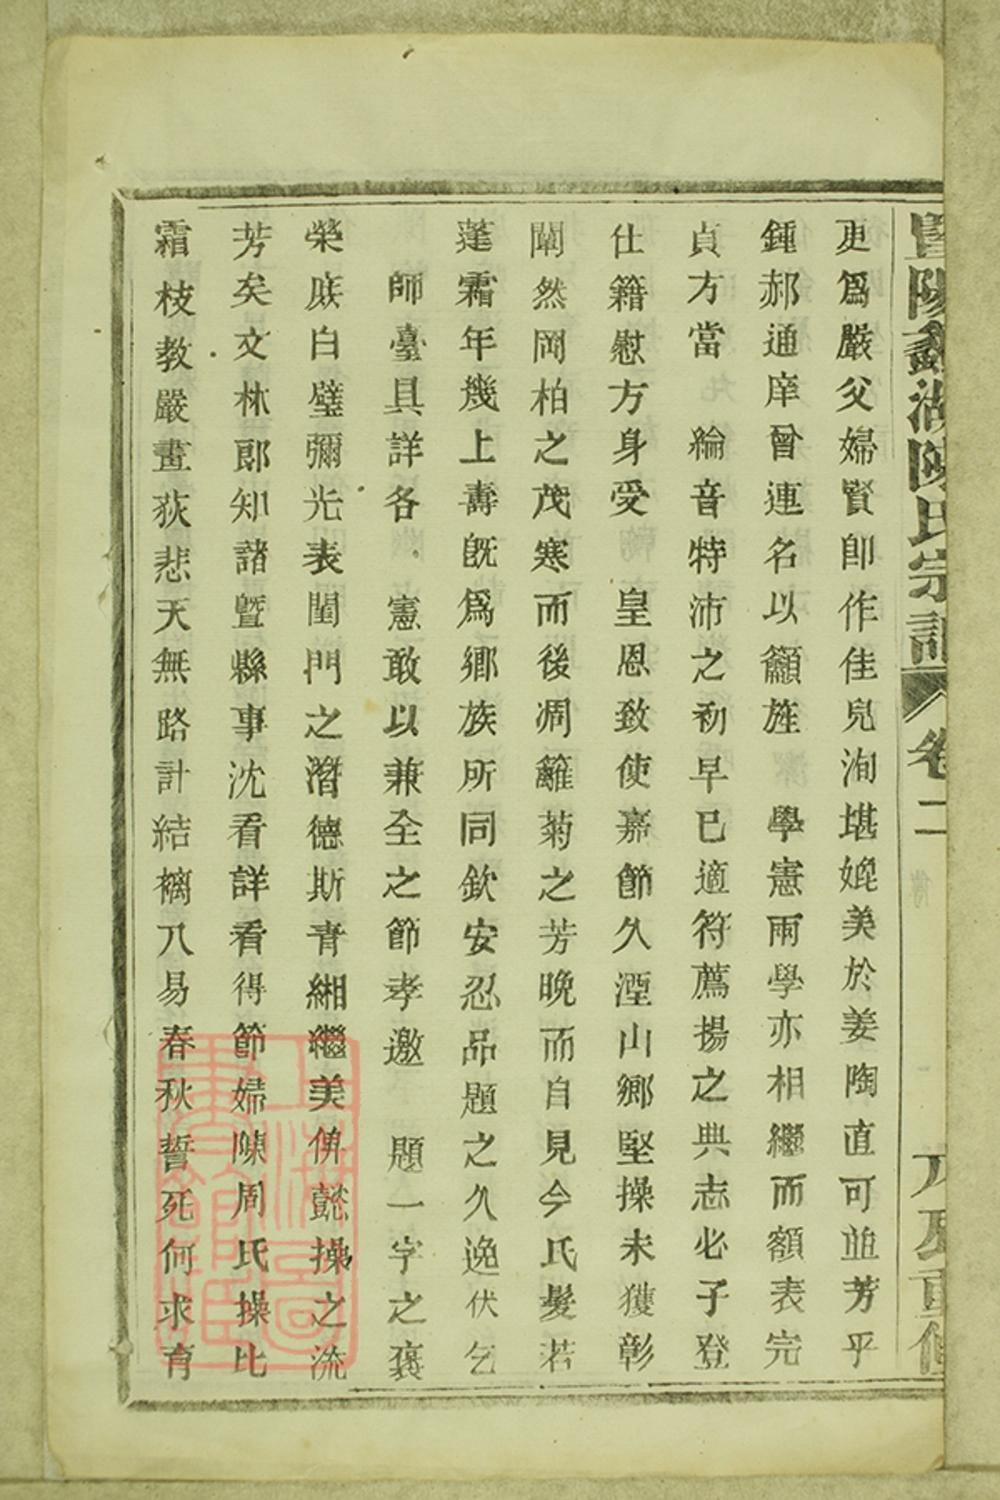 暨陽鑫湖陳氏宗譜 卷二
更爲嚴父婦賢卽作佳兒洵堪媲美於姜陶直可並芳乎
鍾郝通庠曾連名以籲旌 學憲兩學亦相繼而額表完
貞方當 綸音特沛之初早已適符薦揚之典志必子登
仕籍慰方身受 皇恩致使嘉節久湮山鄉堅操未獲彰
闡然岡柏之茂寒而後凋籬菊之芳晚而自見今氏髮若
蓬霜年幾上壽旣爲鄉族所同欽安忍品題之久逸伏乞
師臺具詳各 憲敢以兼全之節孝邀 題一字之褒
榮庶白璧彌光表閨門之濳德斯青緗繼美俾懿操之流
芳矣文林郎知諸暨縣事沈看詳看得節婦陳周氏操比
霜枝教嚴畫荻悲天無路計結褵八易春秋誓死何求育